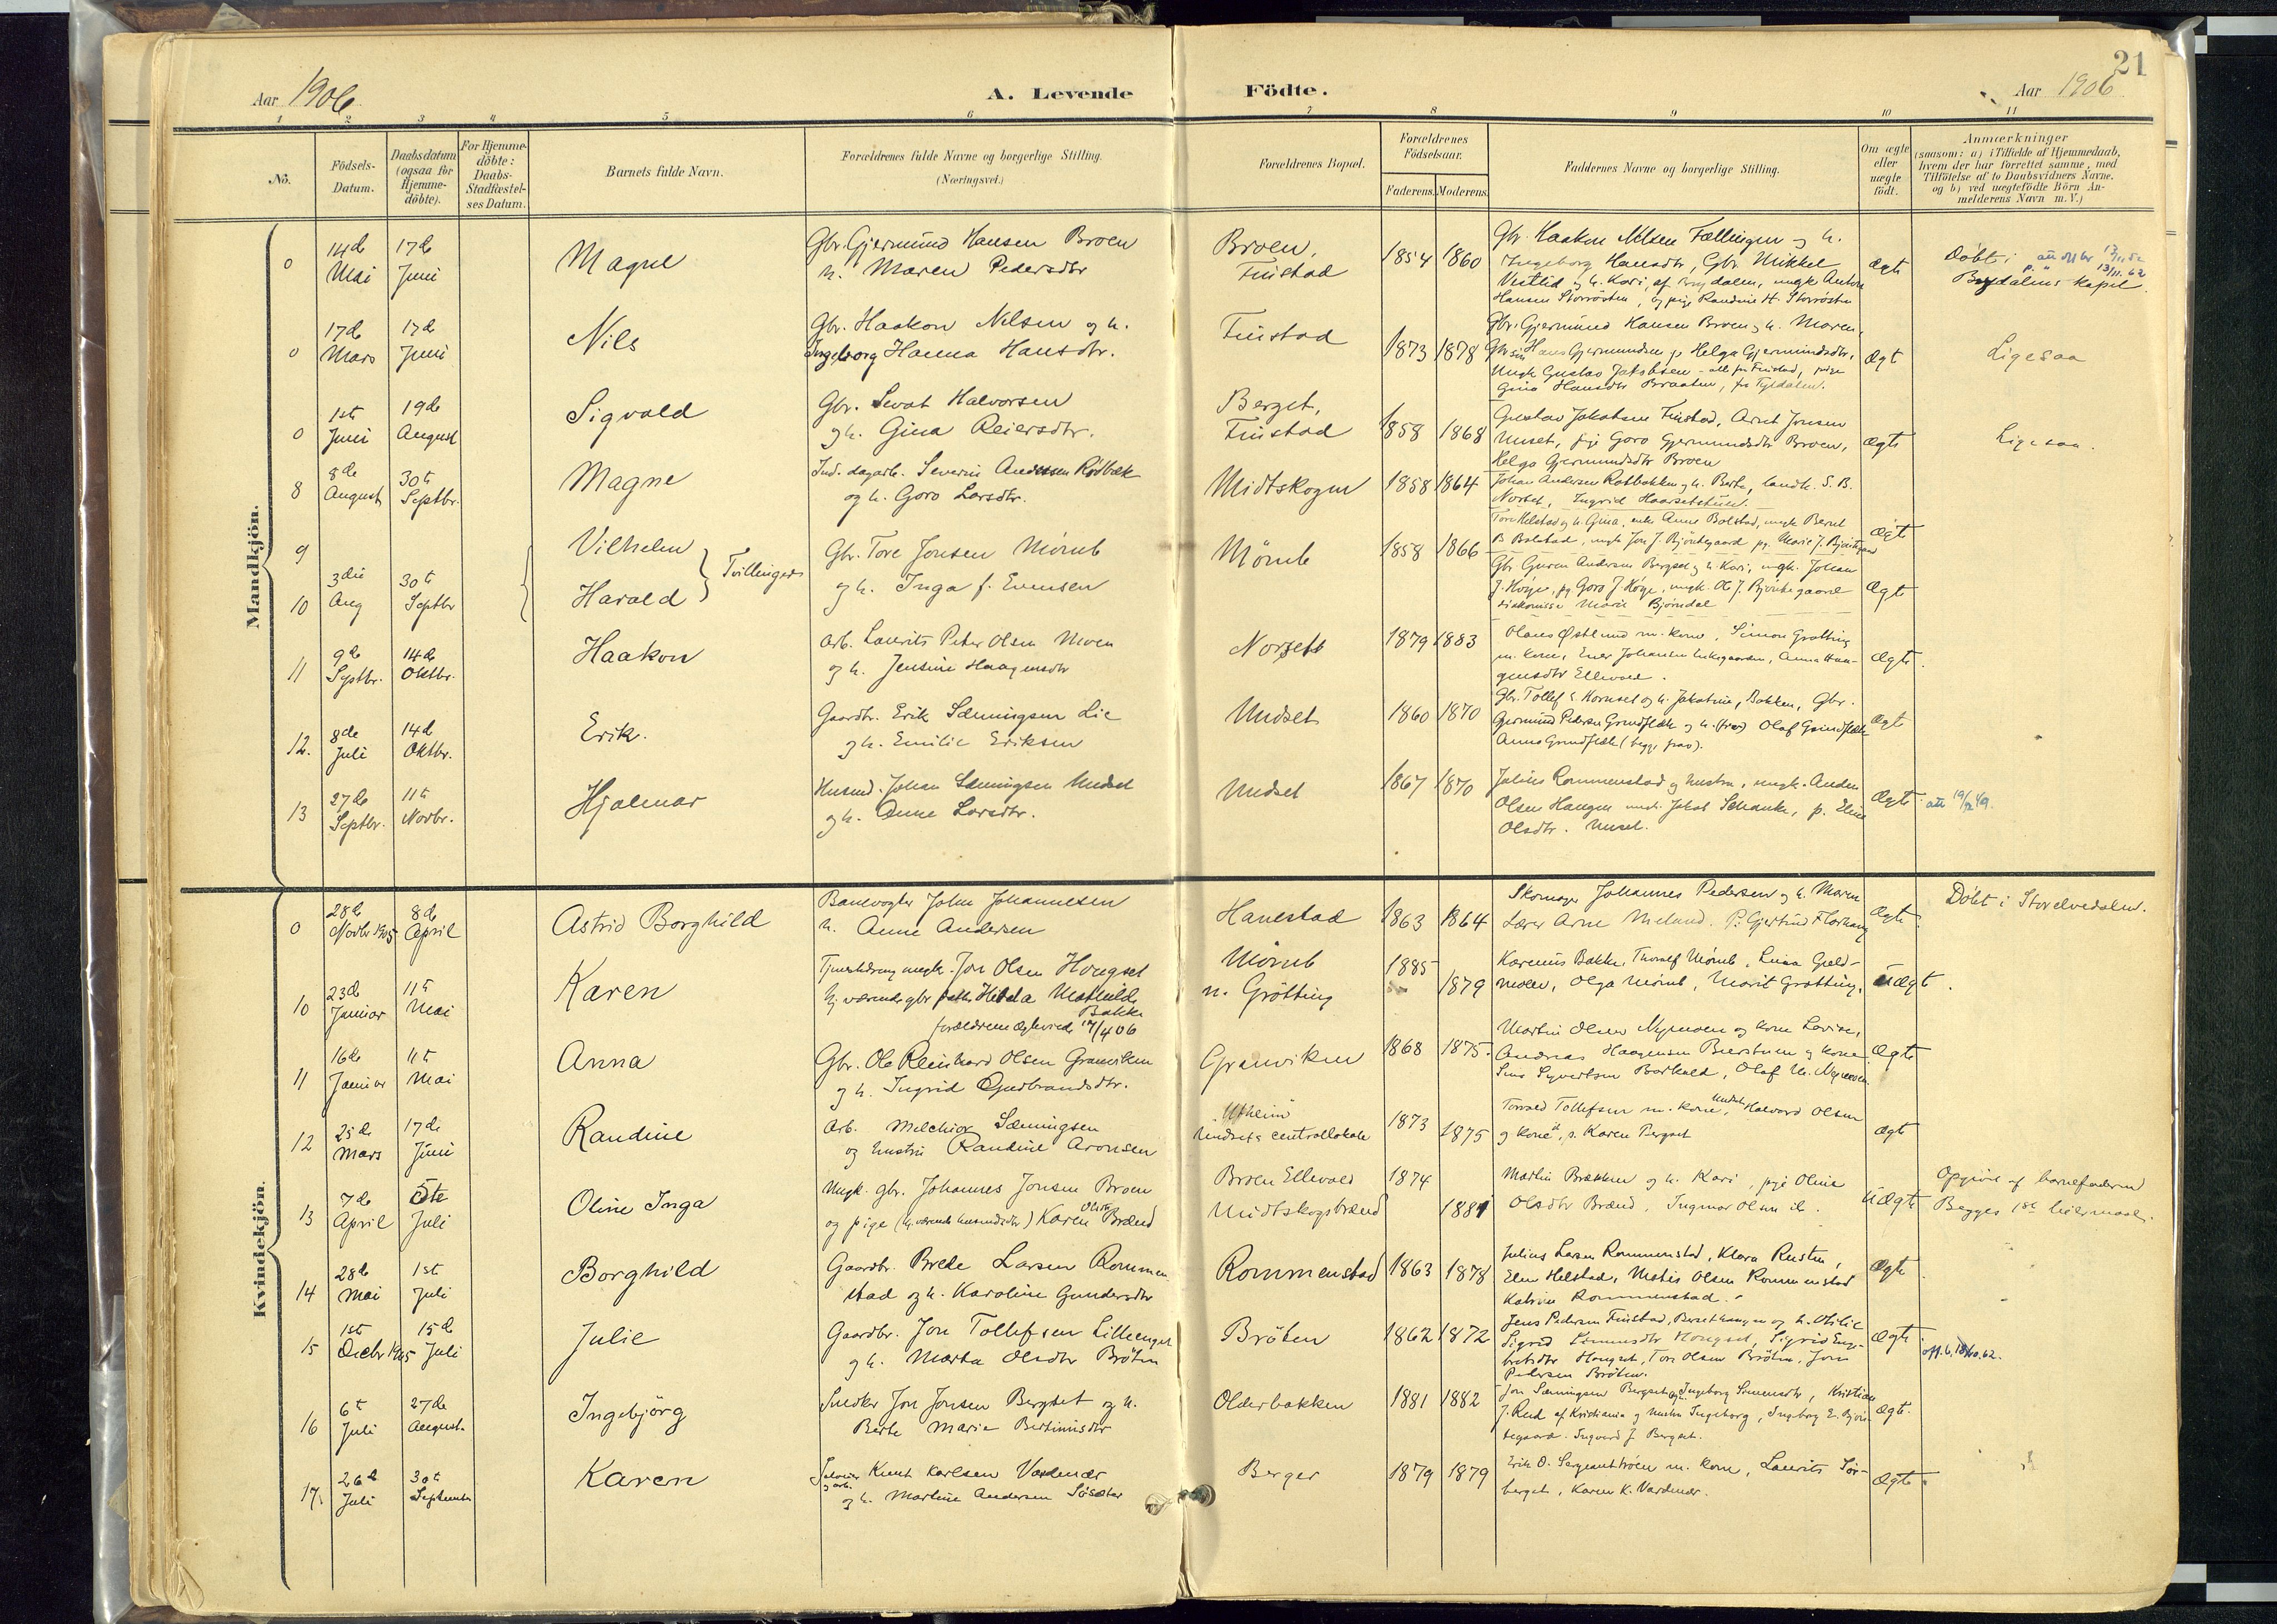 21
Aar 1906
A. Levende Födte.
Aar 1906
1 2 3 4 5 6 7 8 9 10 11
Nô.
Födsels-Datum.
Daabsdatum (ogsaa for Hjemme-döbte).
For Hjemme-döbte: Daabs-Stadfæstel-ses Datum.
Barnets fulde Navn.
Forældrenes fulde Navne og borgerlige Stilling. (Næringsvei.)
Forældrenes Bopæl.
Forældrenes Födselsaar.
Faderens. Moderens.
Faddernes Navne og borgerlige Stilling.
Om ægte eller uægte födt.
Anmærkninger
(saasom: a) i Tilfælde af Hjemmedaab,
hvem der har forrettet samme, med
Tilföielse af to Daabsvidners Navne.
og b) ved uægtefödte Börn An-
melderens Navn m. V.)
Mandkjön.
0 14de Mai 17de Juni Magne
Gbr. Gjermund Hansen Broen
h. Maren Pedersdtr
Broen, Finstad 1854 1860
Gbr. Haakon Nilsen Fællingen og h.
Ingeborg Hansdtr, Gbr. Mikkel
Vestlid og h. Kari, af Brydalen, ungk. Anton
Hansen Storrösten, og pige Randine H. Storrösten
Ægte
Döbt i Brydalens Kapel.
13/11. 62
0 17de Mars 17de Juni Nils
Gbr. Haakon Nilsen og h.
Ingeborg Hanna Hansdtr.
Finstad 1873 1878
Gbr. Gjermund Hansen Broen og h. Maren,
Hans Gjermundsen p. Helga Gjermundsdtr,
Ungk Gustav Jakobsen - alle fra Finstad, pige
Gina Hansdtr Braaten, fra Tyldalen.
Ægt
Ligesaa
0 1ste Juni 19de August Sigvald
Gbr. Sevat Halvorsen
og h. Gina Reiersdtr.
Berget, Finstad 1858 1868
Gustav Jakobsen Finstad, Arnt Jonsen
Unset, pige Goro Gjermundsdtr Broen,
Helga Gjermundsdtr Broen
Ægte
Ligesaa.
8 8de August 30te Septbr. Magne
Ind. dagarb. Severin Andersen Rödbæk
og h. Goro Larsdtr.
Midtskogen 1858 1864
Johan Andersen Rotbakken og h. Berte, landh. S. B.
Norset, Ingrid Haarsetstuen.
Ægt
9 Vilhelm
10 3die Aug 30te Septbr Harald
Tvillinger
Gbr. Tore Jonsen Mömb
og h. Inga f. Evensen
Mömb 1858 1866
Tore Helstad og h. Gina, enke Anne Bolstad, ungk Bernt
B. Bolstad, ungk Jon J. Björntegaard pg. Marie J. Björntegaard
Gbr Guren Andersen Bergset og h. Kari, ungk. Johan
J. Höye, pg Goro J. Höye, ungk. Ol J. Björntegaard
diakonisse Marie Björndal
Ægte
11 9de Septbr. 14de Oktbr. Haakon
Arb. Laurits Peter Olsen Moen
og h. Jensine Haagensdtr
Norset 1879 1883
Olaus Östlund m. kone, Simon Grötting
m. kone, Ener Johansen Enksgaarden, Anna Haa-
gensdtr Ellevold.
Ægte.
12. 8de Juli 14de Oktbr. Erik.
Gaardbr. Erik Sæmingsen Lie
og h. Emilie Eriksen
Undset 1860 1870
Gbr. Tollef E Hornset og h. Jakobine, Bakken, Gbr.
Gjermund Pedersen Grundflæk og h. (frav) Olaf Grundflæk
Anna Grundflæk (begge frav).
Ægt
13 27de Septbr. 11te Novbr. Hjalmar
Husmd. Johan Sæmingsen Undset
og h. Anne Larsdtr.
Undset 1867 1870
Julius Rommenstad og hustru, ungk. Anders
Olsen Haugen, Jakob Schanke, p. Eline
Olsdtr. Unset.
Ægte.
Kvindekjön.
0 28de Novbr 1905 8de April Astrid Borghild
Banevogter John Johannesen
h. Anne Andersen
Hanestad 1863 1864
Skomager Johannes Pedersen og h. Maren
Lærer Arne Meland. P. Gjertrud Florhaug
Ægte.
Döbt i Storelvedalen.
10 23de Januar 11te Mai Karen
Tjenestedreng ungk. Jon Olsen Hougset
hj. værende gbr datter Hilda Mathilde
Bakke
forældrene ægteviede 17/4 06
Mömb n. Grötting 1885 1879
Karenus Bakke, Thoralf Mömb, Lina Græd-
moen, Olga Mömb, Marit Grötting.
Uægt.
11 16de Januar 11te Mai Anna
Gbr. Ole Reinhard Olsen Granviken
og h. Ingrid Gudbrandsdtr.
Granviken 1868 1875.
Martin Olsen Nymoen og kone Lovise,
Andreas Haagensen Berstuen og kone
Sina Syvertsen Barkald, Olaf M. Nymoen.
Ægte
12 25de Mars 17de Juni Randine
Arb. Melchior Sæmingsen
og hustru Randine Aronsen
Utheim
Undset s centrallokale 1873 1875
Torvald Tollefsen m. kone, Halvard Olsen
og kone, p. Karen Bergset
Ægt
13 7de April 5te Juli Oline Inga
Ungk. gbr. Johannes Jonsen Broen
og pige (hj. værende husmdsdtr) Karen Olsdtr Brænd
Broen Ellevold 1874
Midtskogsbrænd 1881
Martin Bræken og h. Kari, pige Oline
Olsdtr Brænd, Ingvar Olsen ib.
Uægte
Opgivet af barnefaderen
Begges 1ste leiermaal.
14 28de Mai 1ste Juli Borghild
Gaardbr. Brede Larsen Rommen
stad og h. Karoline Gundersdtr
Rommenstad 1863 1878
Julius Larsen Rommenstad, Klara Rusten,
Elen Helstad, Mathis Olsen Rommenstad
Katrine Rommenstad.
Ægte
15 1ste Decbr 1905 15de Juli Julie
Gaardbr. Jon Tollefsen Lilleenget
og h. Marta Olsdtr Bröten
Bröten 1862 1872
Jens Pedersen Finstad, Bersethaugen og h. Otilie
Sigrid Simensdtr Hougset, Sigrid Enge-
bretsdtr Hougset, Tore Olsen Bröten, Jon
Pedersen Bröten.
Ægte
16 6te Juli 27de August Ingebjörg
Snedker Jon Jonsen Bergset og h.
Berte Marie Bertinusdtr
Olderbakken 1881 1882
Jon Sæmingsen Bergset og Ingeborg Simensdtr, Kristian
J. Rud af Kristiania og hustru Ingeborg, Ingeborg E. Björn-
tegaard. Ingvard J. Bergset.
Ægte.
17. 26de Juli 30te September Karen
Knut Karlsen Vardenær
og h. Martine Andersen Söseter
Berger 1879 1879
Erik O. Sergeantbroen m. kone, Laurits Sör-
berget, Karen K. Vardenær.
Ægte